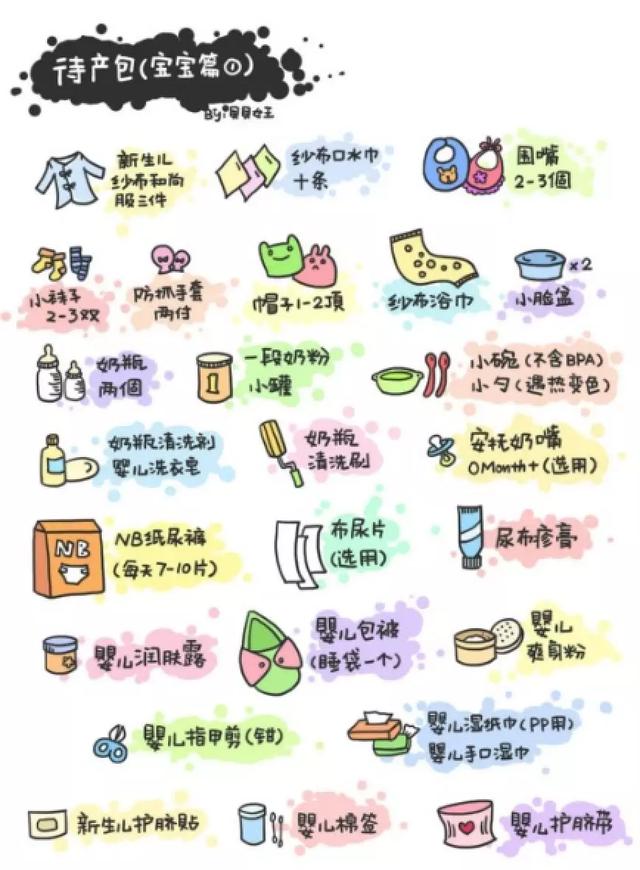 待产包(宝宝篇①)
By:贝贝女王
新生儿
纱布和尚
服三件
纱布口水巾
十条
围嘴
2-3個
小袜子
2-3双
防抓手套
两付
帽子1-2頂
纱布浴巾
×2
小脸盆
奶瓶
两個
1
一段奶粉
小罐
小碗(不含BPA)
小勺(遇热变色)
奶瓶清洗剂
嬰儿洗衣皂
奶瓶
清洗刷
安抚奶嘴
0Month+(选用)
NB
NB纸尿裤
(每天7-10片)
布尿片
(选用)
尿布疹膏
嬰儿润肤露
嬰儿包被
(睡袋一个)
嬰儿
爽身粉
嬰儿指甲剪(钳)
嬰儿湿纸巾(PP用)
嬰儿手口湿巾
新生儿护脐貼
嬰儿棉签
嬰儿护脐带